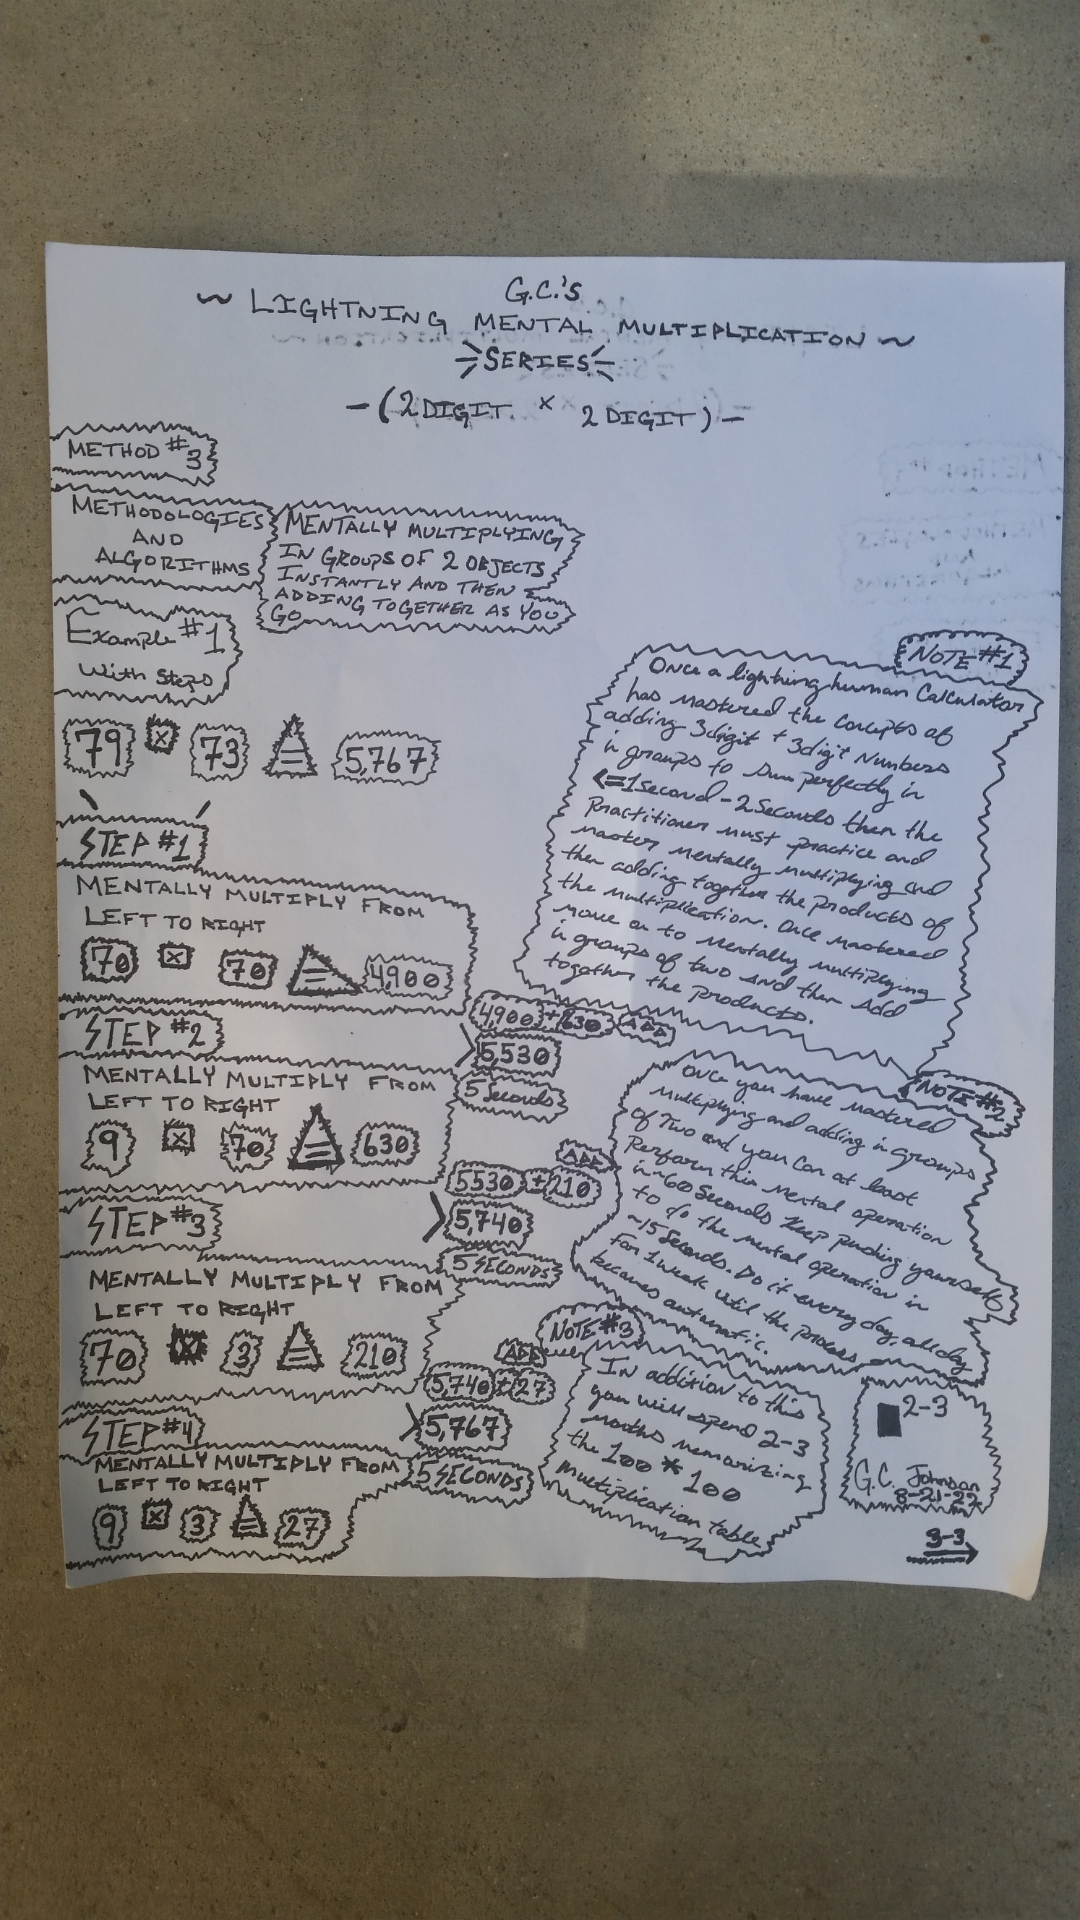 G.C.'s
~ LIGHTNING MENTAL MULTIPLICATION ~
SERIES
-(2 DIGIT × 2 DIGIT)-
METHOD #3
METHODOLOGIES
AND
ALGORITHMS
MENTALLY MULTIPLYING
IN GROUPS OF 2 OBJECTS
INSTANTLY AND THEN
ADDING TOGETHER AS YOU
GO
Example #1
With Steps
79 × 73 = 5,767
STEP #1
MENTALLY MULTIPLY FROM
LEFT TO RIGHT
70 × 70 = 4,900
4,900 + 630 ADD
5,530
5 Seconds
STEP #2
MENTALLY MULTIPLY FROM
LEFT TO RIGHT
9 × 70 = 630
ADD
5530 + 210
5,740
5 SECONDS
STEP #3
MENTALLY MULTIPLY FROM
LEFT TO RIGHT
70 × 3 = 210
ADD
5,740 + 27
5,767
5 SECONDS
STEP #4
MENTALLY MULTIPLY FROM
LEFT TO RIGHT
9 × 3 = 27
NOTE #1
Once a lightning human Calculator
has mastered the concepts of
adding 3digit + 3digit Numbers
in groups to Sum perfectly in
<=1second - 2Seconds then the
Practitioner must practice and
master mentally multiplying and
then adding together the products of
the multiplication. Once mastered
move on to mentally multiplying
in groups of two and then add
together the products.
NOTE #2
Once you have mastered
multiplying and adding in groups
of Two and you Can at least
Perform this mental operation
in ~60 Seconds Keep pushing yourself
to do the mental operation in
~15 Seconds. Do it every day, all day
For 1 week until the process
becomes automatic.
NOTE #3
In addition to this
you will spend 2-3
months memorizing
the 100 * 100
multiplication table
2-3
G.C. Johnson
8-21-22
3-3